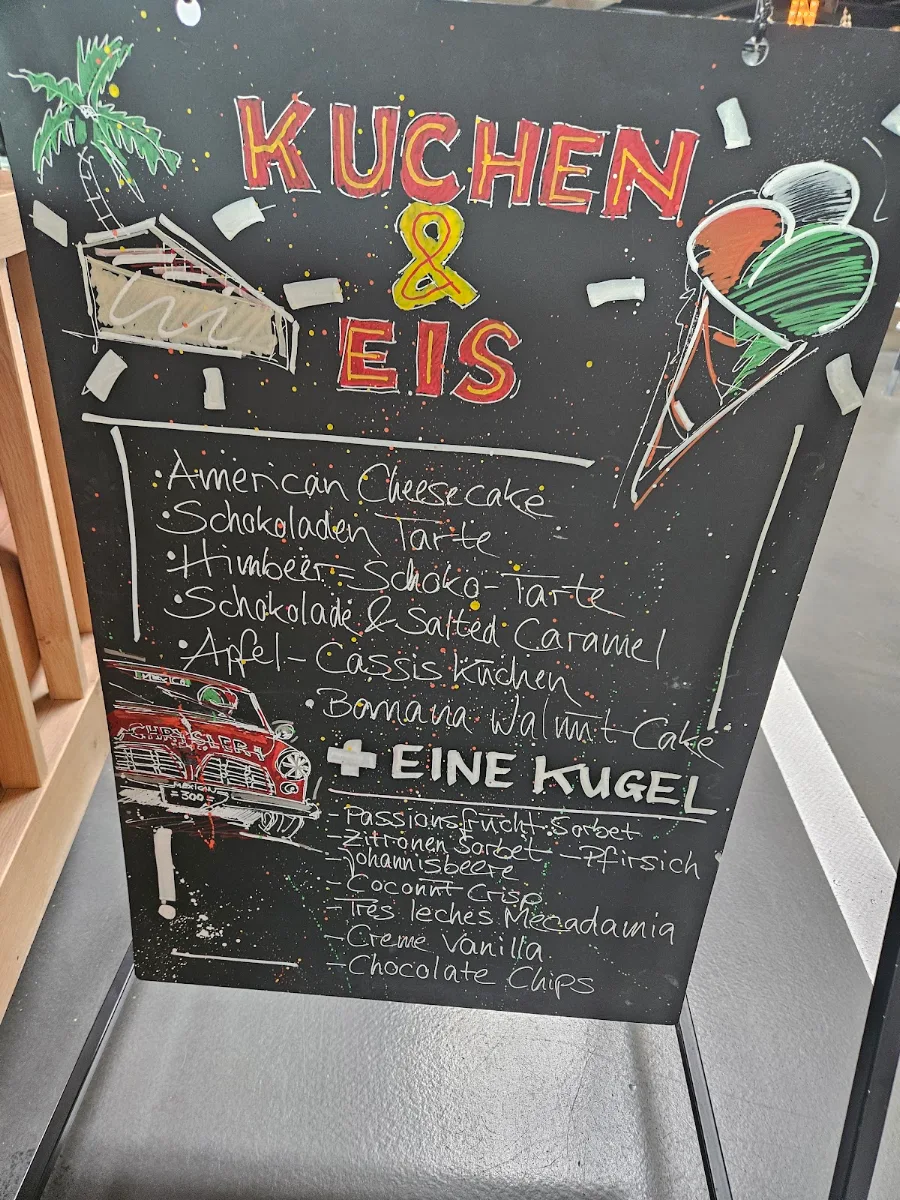 KUCHEN
&
EIS
• American Cheesecake
• Schokoladen Tarte
• Himbeer-Schoko-Tarte
• Schokolade & Salted Caramel
• Apfel-Cassis Kuchen
• Banana Walnut Cake
+ EINE KUGEL
- Passionsfrucht Sorbet
- Zitronen Sorbet - Pfirsich
- Johannisbeere
- Coconut Crisp
- Tres leches Mecadamia
- Creme Vanilla
- Chocolate Chips
CHRYSLER
MEXICAN
=300=